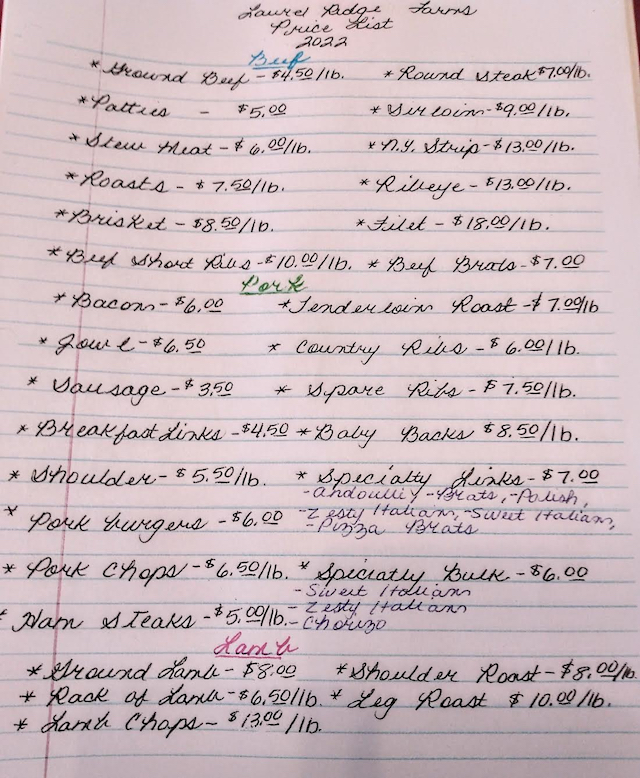 Laurel Ridge Farms
Price List
2022
Beef
* Ground Beef - $4.50/lb. * Round Steak $7.00/lb.
* Patties - $5.00 * Sirloin - $9.00/lb.
* Stew Meat - $6.00/lb. * N.Y. Strip - $13.00/lb.
* Roasts - $7.50/lb. * Ribeye - $13.00/lb.
* Brisket - $8.50/lb. * Filet - $18.00/lb.
* Beef Short Ribs - $10.00/lb. * Beef Brats - $7.00
Pork
* Bacon - $6.00 * Tenderloin Roast - $7.00/lb
* Jowl - $6.50 * Country Ribs - $6.00/lb.
* Sausage - $3.50 * Spare Ribs - $7.50/lb.
* Breakfast Links - $4.50 * Baby Backs $8.50/lb.
* Shoulder - $5.50/lb. * Specialty Links - $7.00
- Andoulli - Brats, - Polish,
* Pork burgers - $6.00 - Zesty Italian, - Sweet Italian,
- Pizza Brats
* Pork Chops - $6.50/lb. * Specialty Bulk - $6.00
- Sweet Italian
- Zesty Italian
* Ham Steaks - $5.00/lb. - Chorizo
Lamb
* Ground Lamb - $8.00 * Shoulder Roast - $8.00/lb.
* Rack of Lamb - $6.50/lb. * Leg Roast $10.00/lb.
* Lamb Chops - $13.00/lb.